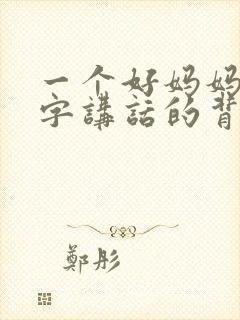 一个好妈妈
字講話的背
鄭彤